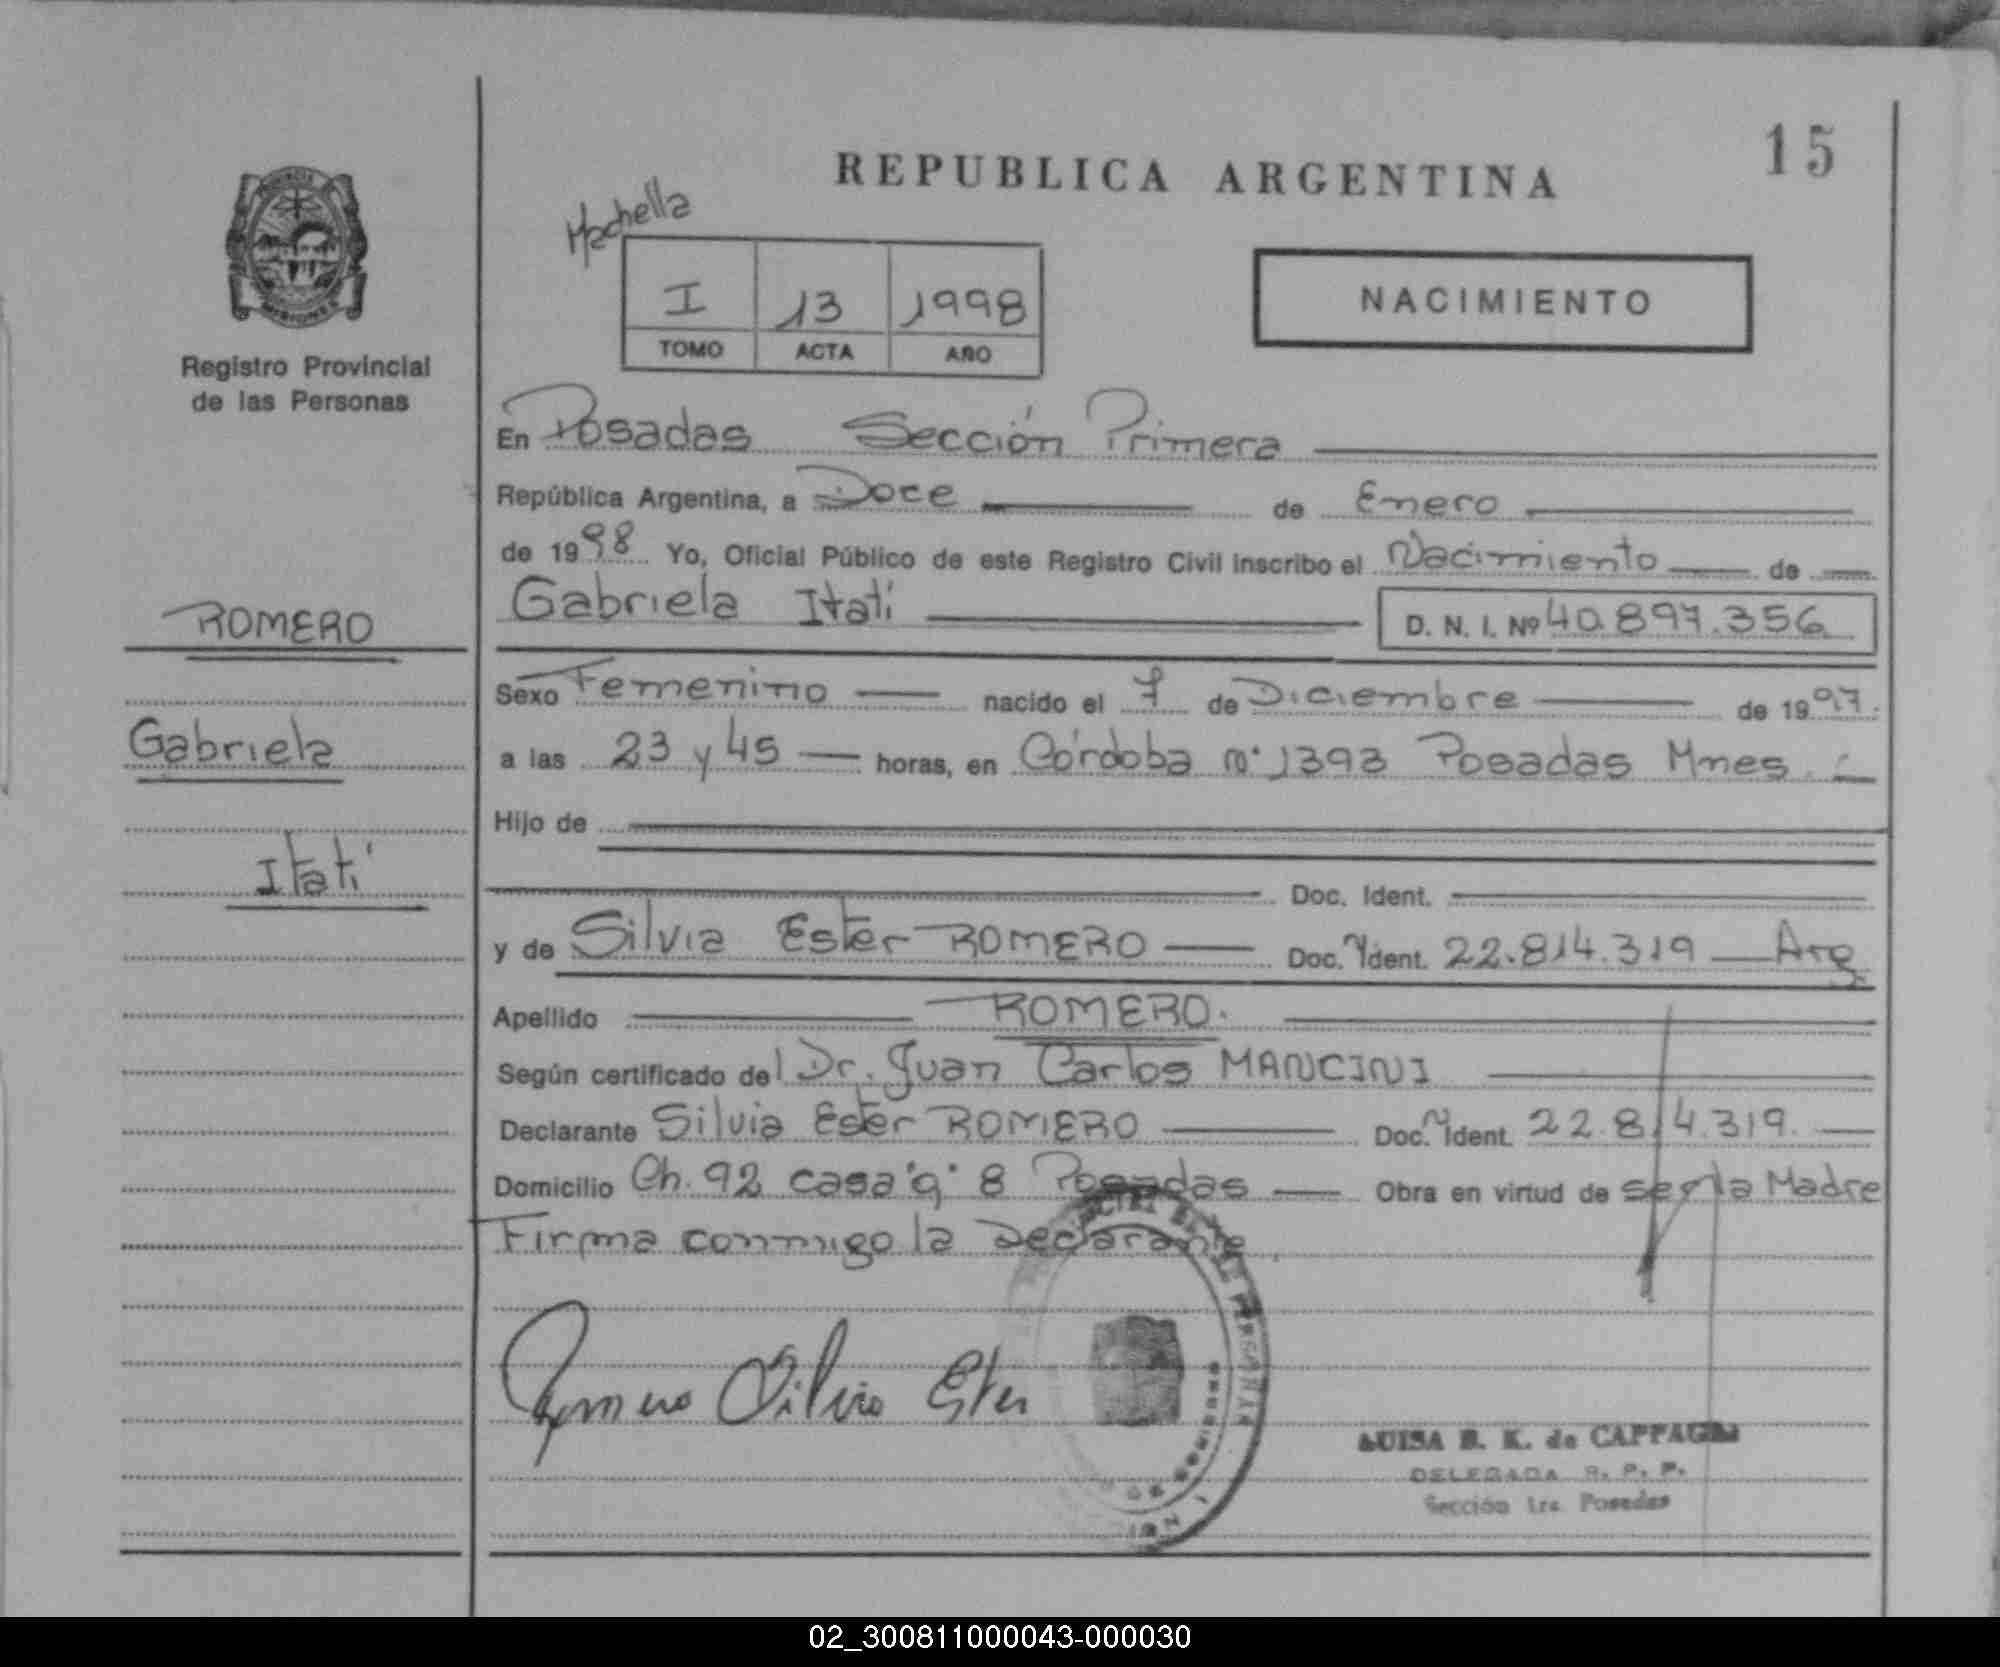 15
REPUBLICA ARGENTINA
I 13 1998
TOMO ACTA AÑO
NACIMIENTO
PROVINCIA
MISIONES
Registro Provincial
de las Personas
ROMERO
Gabriela
Itatí
En Posadas Sección Primera
República Argentina, a Doce de Enero
de 1998 Yo, Oficial Público de este Registro Civil inscribo el Nacimiento de
Gabriela Itatí D. N. I. Nº 40.897.356
Sexo Femenino nacido el 7 de Diciembre de 1997.
a las 23 y 45 horas, en Córdoba nº 1393 Posadas Mnes.
Hijo de
Doc. Ident.
y de Silvia Ester ROMERO Doc. Ident. 22.814.319 Arg
Apellido ROMERO.
Según certificado del Dr. Juan Carlos MANCINI
Declarante Silvia Ester ROMERO Doc. Ident. 22.814.319.
Domicilio Ch. 92 casa "q" 8 Posadas Obra en virtud de ser la Madre
Firma conmigo la Declarante.
Romero Silvia Ester
LUISA B. K. de
DELEGADA R. P. P.
Sección 1ra. Posadas
02_300811000043-000030